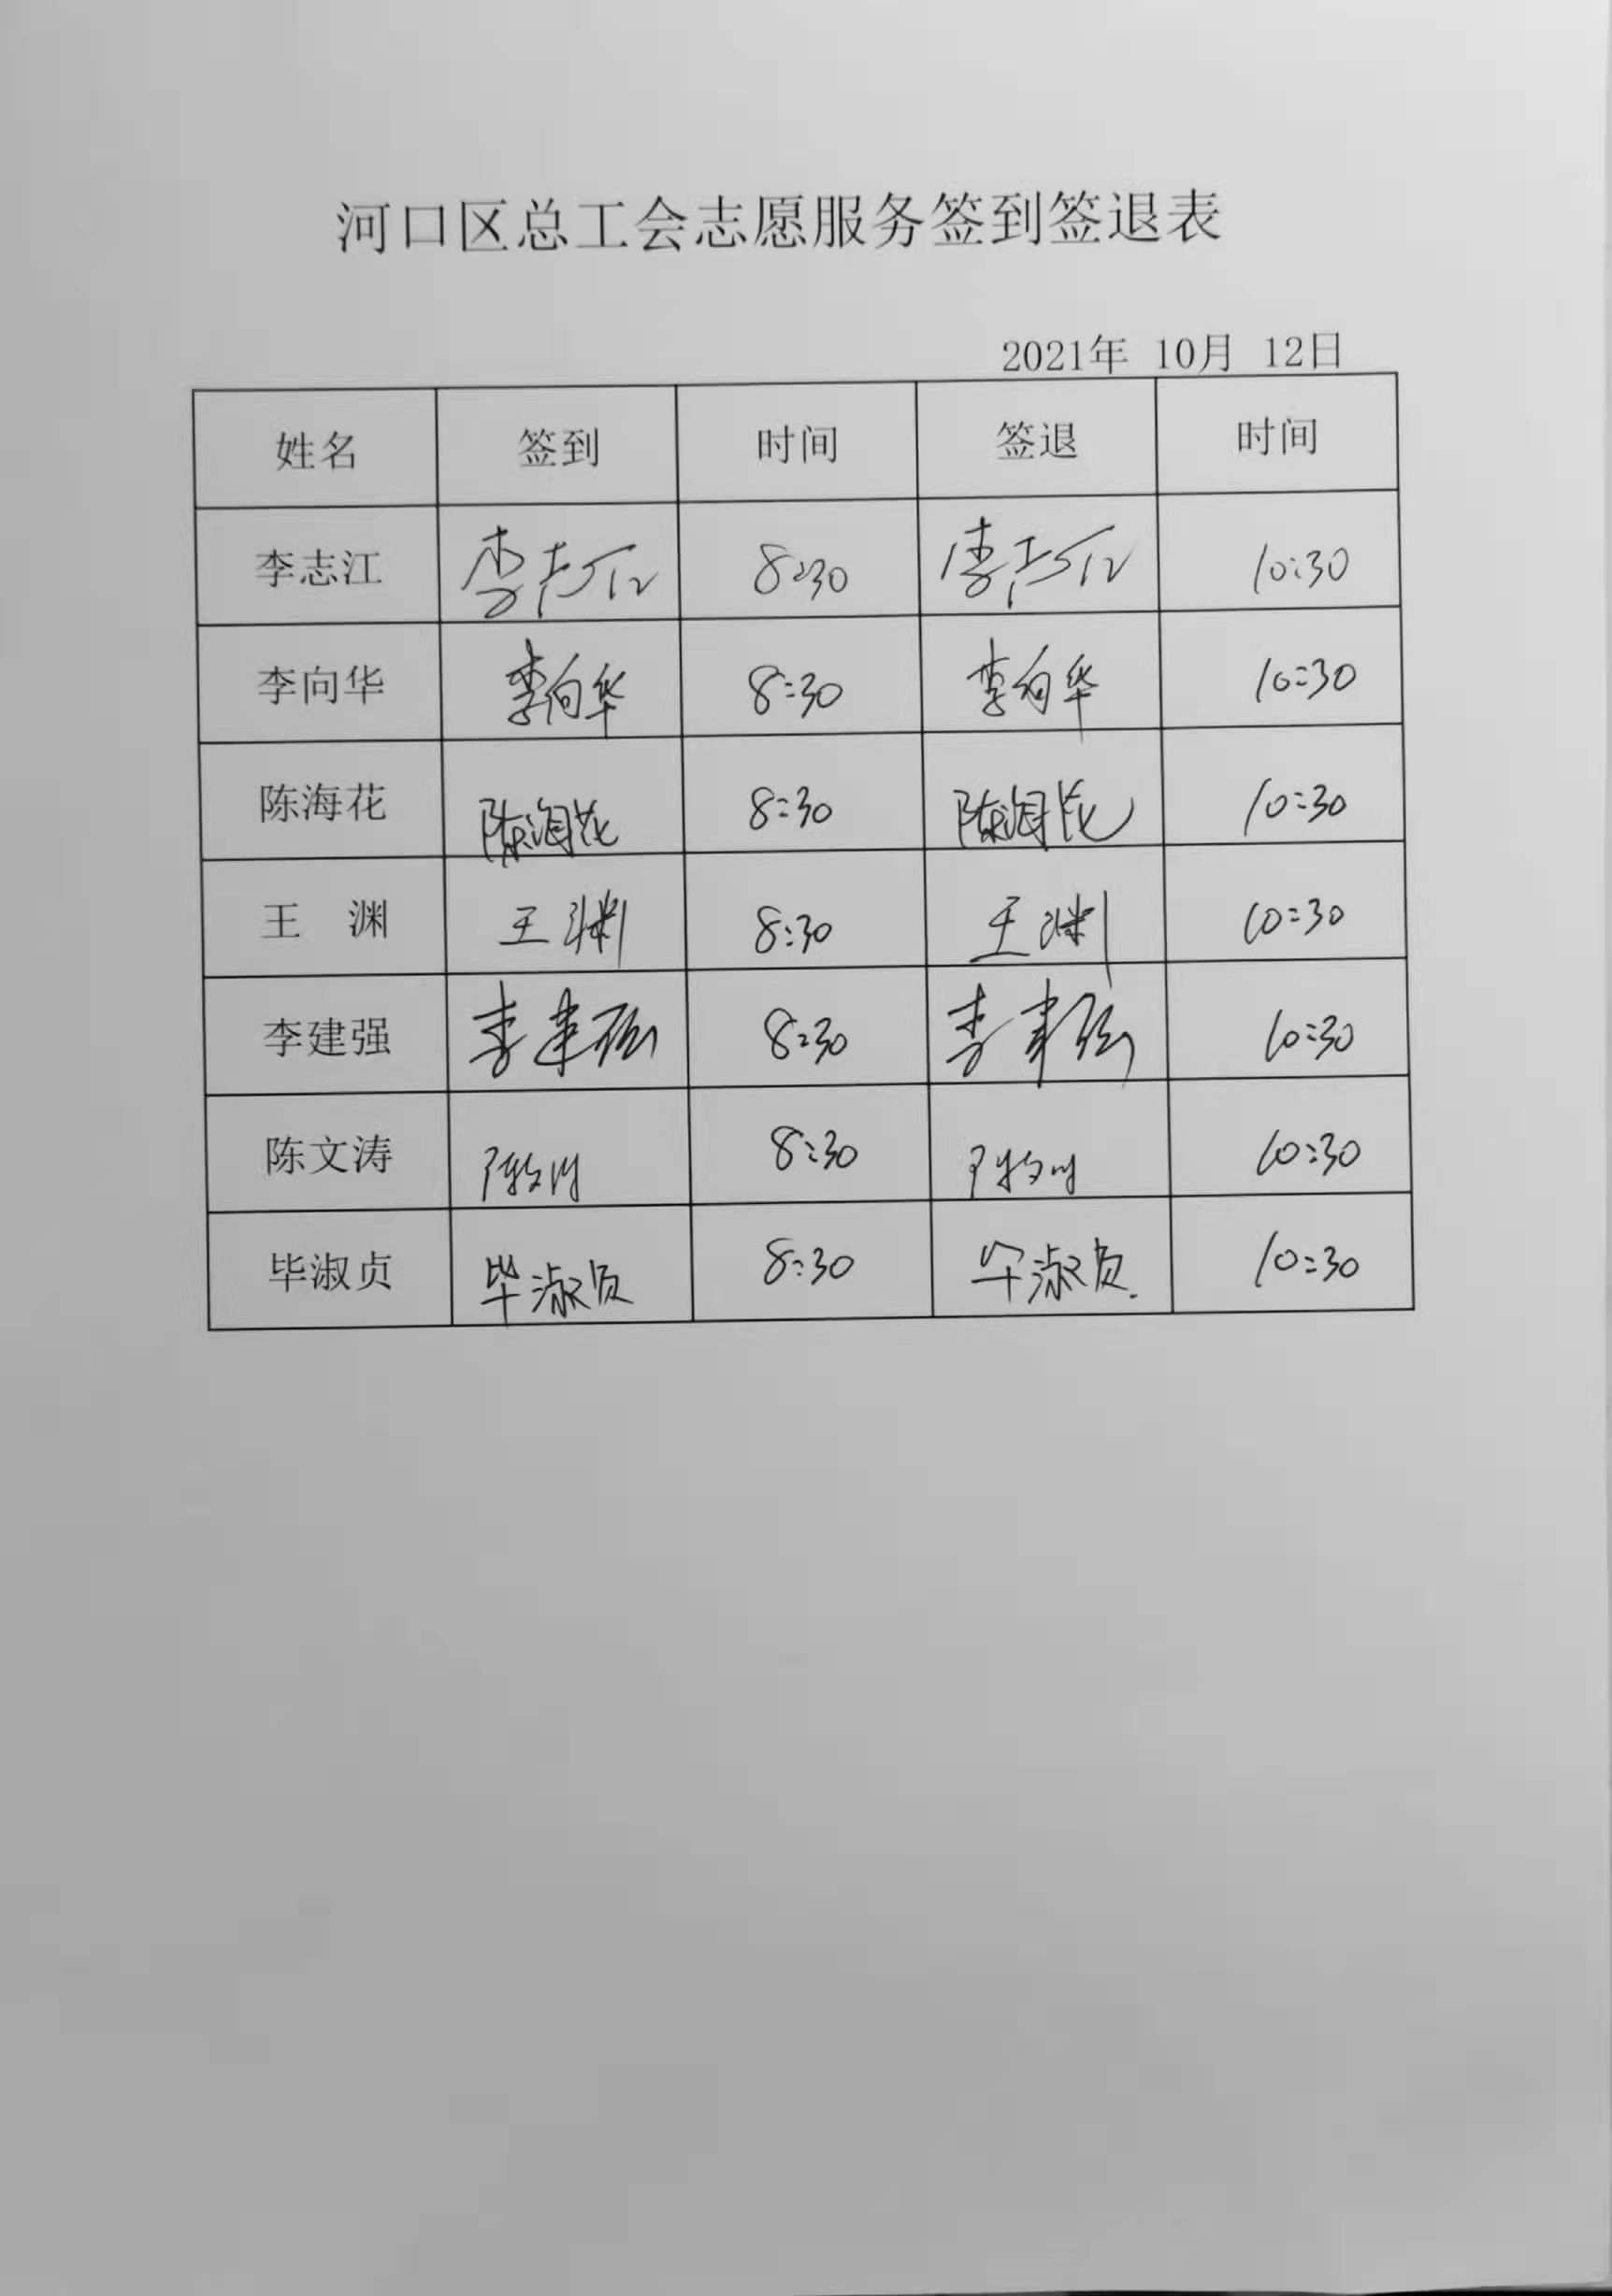 河口区总工会志愿服务签到签退表
2021年 10月 12日
姓名 签到 时间 签退 时间
李志江 李志江 8:30 李志江 10:30
李向华 李向华 8:30 李向华 10:30
陈海花 陈海花 8:30 陈海花 10:30
王 渊 王渊 8:30 王渊 10:30
李建强 李建强 8:30 李建强 10:30
陈文涛 陈文涛 8:30 陈文涛 10:30
毕淑贞 毕淑贞 8:30 毕淑贞 10:30